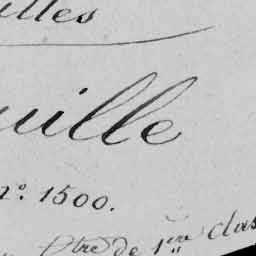 illes
uille
n.° 1500.
Ptre de 1ère clas